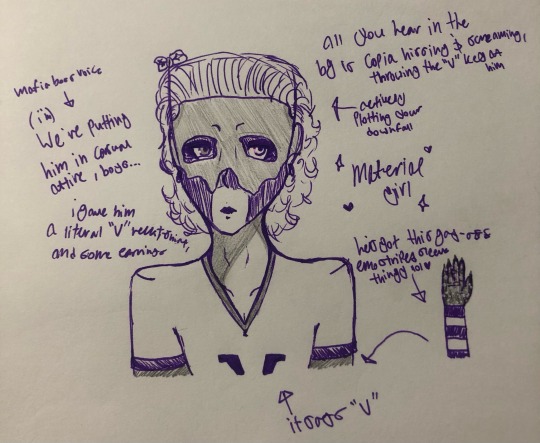 mafia boss voice
(ii)
We're putting
him in casual
attire, boys...
i gave him
a literal "V" neck
and some earrings
all you hear in the
bg is Copia hissing & screaming,
throwing the "V" key at
him
actively
plotting your
downfall
Material
girl
he's got this gay-ass
emo stripes sleeve
thingy lol
"V"